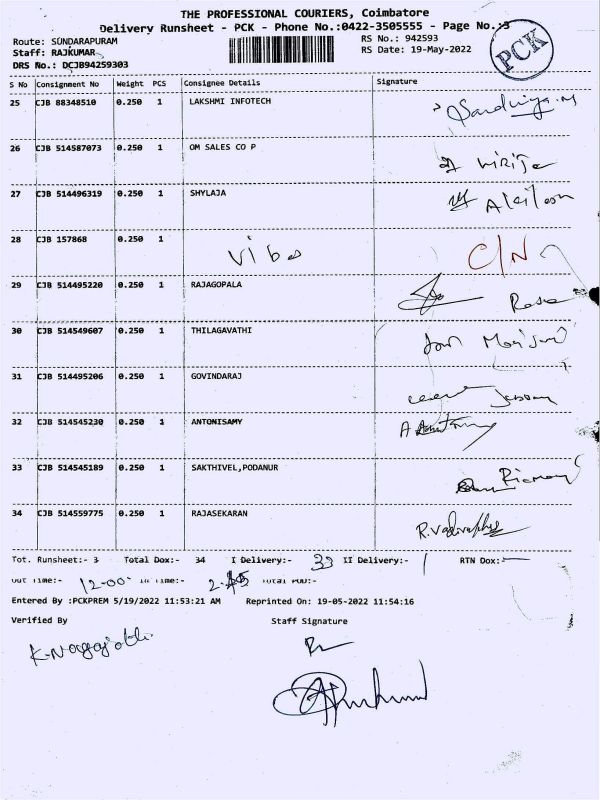 THE PROFESSIONAL COURIERS, Coimbatore
Delivery Runsheet - PCK - Phone No.:0422-3505555 - Page No.:3
Route: SUNDARAPURAM RS No.: 942593
Staff: RAJKUMAR RS Date: 19-May-2022
DRS No.: DCJB94259303
PCK
S No Consignment No Weight PCS Consignee Details Signature
25 CJB 88348510 0.250 1 LAKSHMI INFOTECH
26 CJB 514587073 0.250 1 OM SALES CO P
27 CJB 514496319 0.250 1 SHYLAJA
28 CJB 157868 0.250 1 C/N
29 CJB 514495220 0.250 1 RAJAGOPALA
30 CJB 514549607 0.250 1 THILAGAVATHI
31 CJB 514495206 0.250 1 GOVINDARAJ
32 CJB 514545230 0.250 1 ANTONISAMY
33 CJB 514545189 0.250 1 SAKTHIVEL,PODANUR
34 CJB 514559775 0.250 1 RAJASEKARAN
Tot. Runsheet:- 3 Total Dox:- 34 I Delivery:- 33 II Delivery:- 1 RTN Dox:-
Out Time:- 12-00 In Time:- Total POD:-
Entered By :PCKPREM 5/19/2022 11:53:21 AM Reprinted On: 19-05-2022 11:54:16
Verified By Staff Signature